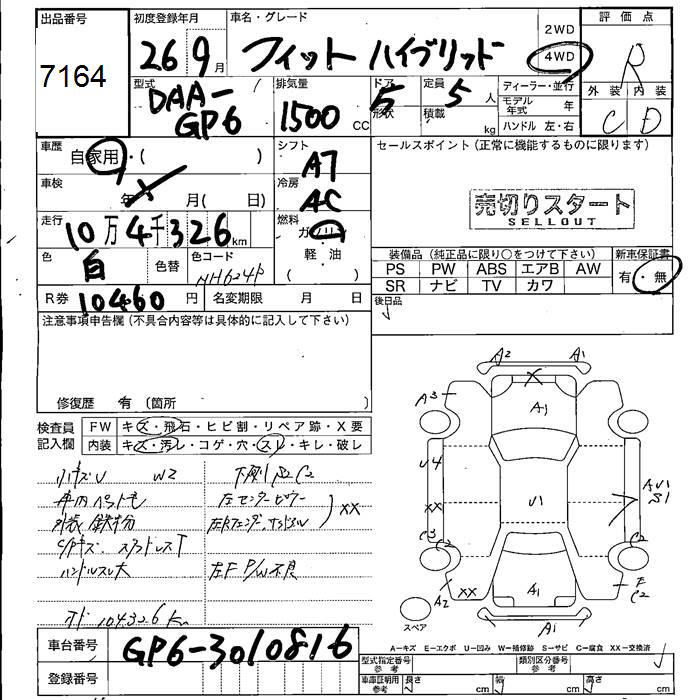 出品番号
7164
初度登録年月
26 9月
車名・グレード
フィット ハイブリッド
2WD
4WD
評価点
R
外装 内装
C D
型式
DAA-
GP6
排気量
1500 CC
ドア
5
形状
定員
5人
積載 kg
ディーラー・並行
モデル年式 年
ハンドル 左・右
車歴
自家用・( )
シフト
AT
セールスポイント (正常に機能するものに限ります)
車検
年 X 月( 日)
冷房
AC
売切りスタート
SELLOUT
走行
10万4千326km
燃料
ガソリン
軽・油
( )
色
白
色替
色コード
NH624P
装備品 (純正品に限り〇をつけて下さい)
新車保証書
PS PW ABS エアB AW
SR ナビ TV カワ
有・無
R券 10460円
名変期限 月 日
後日品
注意事項申告欄 (不具合内容等は具体的に記入して下さい)
修復歴 有 (箇所
検査員
記入欄
FW キズ・飛石・ヒビ割・リペア跡・X要
内装 キズ・汚レ・コゲ・穴・スレ・キレ・破レ
小キズU W2
下廻り S2 C2
車内ペット毛
左センターピラー
外装 鉄粉
XX
スタッドレスT
ハンドルスレ大
左F P/W不良
104326 km
A2 A1
A3
X
A1
U4
XX
C3
C2
U1
AU1
S1
C2
XX
A2
A1
F
C2
A1
スペア
A-キズ E-エクボ U-凹み W-補修跡 S-サビ C-腐食 XX-交換済
車台番号 GP6-3010816
登録番号
型式指定番号
参考
類別区分番号
参考
車庫証明用
参考
長さ cm
幅 cm
高さ cm